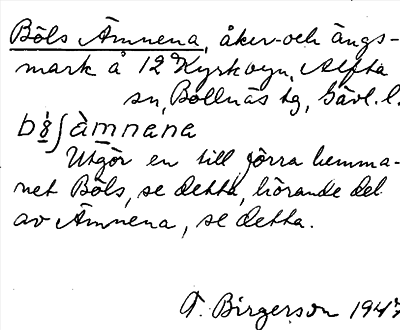 Böls Ämnena, åker- och ängs-
mark å 12 Kyrkbyn, Alfta
sn, Bollnäs tg, Gävl. l.
àmnana
Utgör en till förra hemma-
net Böls, se detta, hörande del
av Ämnena, se detta.
Birgerson 1947